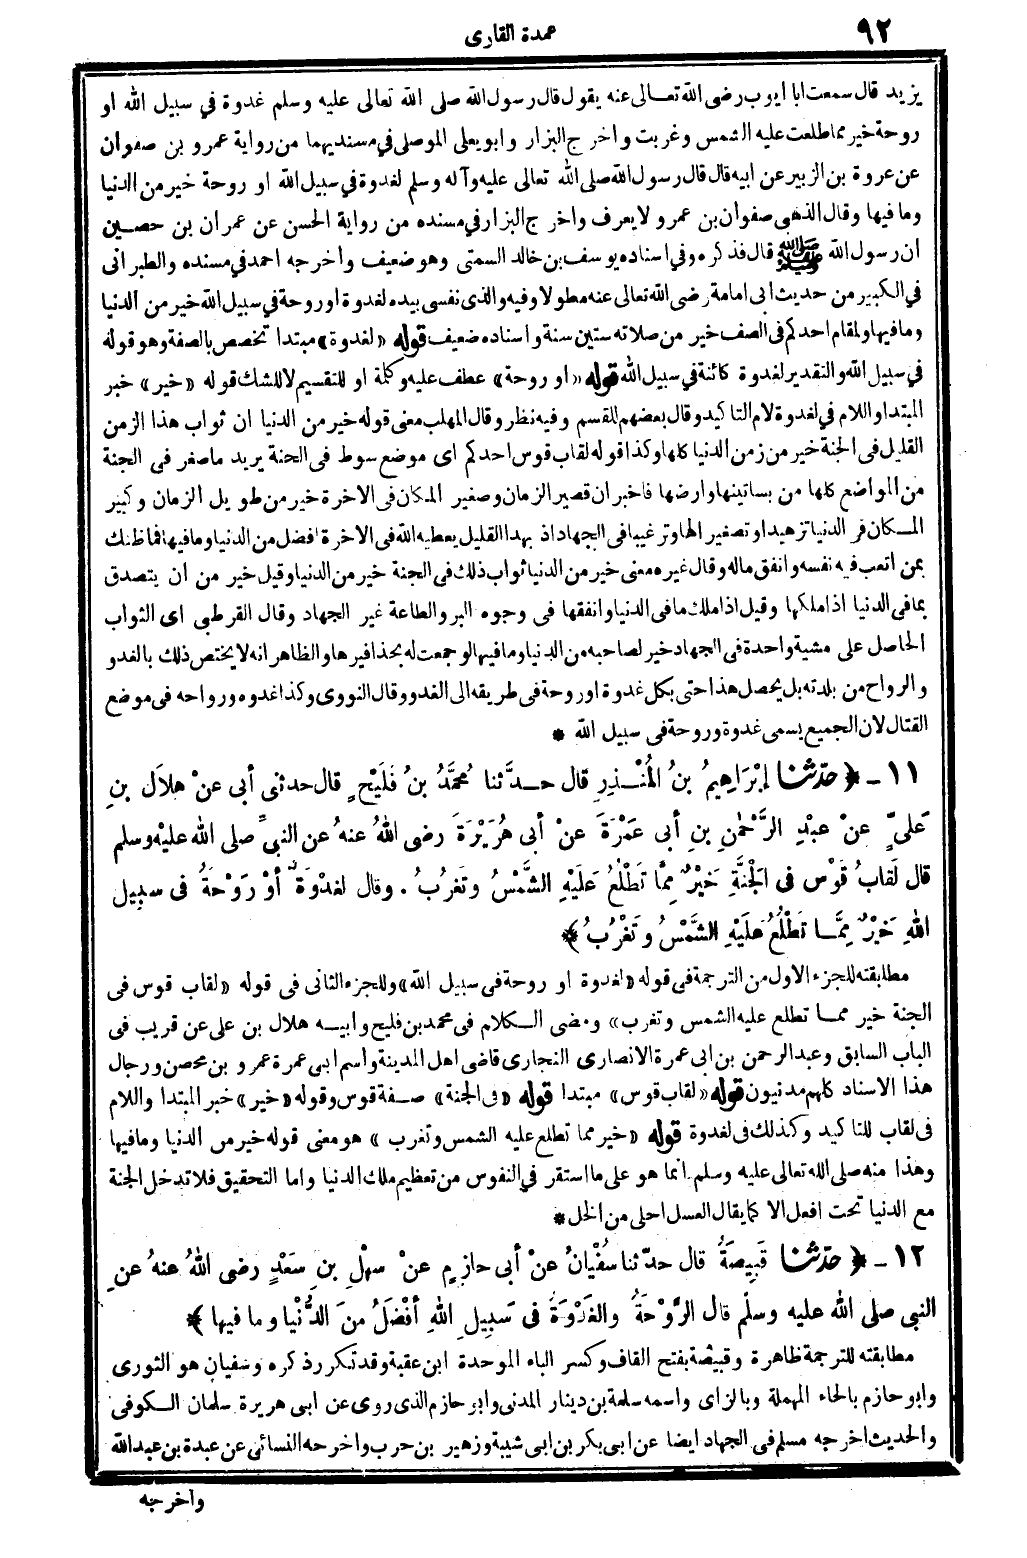 ٩٢
عمدة القارى
يزيد قال سمعت ابا ايوب رضى الله تعالى عنه يقول قال رسول الله صلى الله تعالى عليه وسلم غدوة في سبيل الله او
روحة خير مما طلعت عليه الشمس وغربت واخرج البزار وابو يعلى الموصلى في مسنديهما من رواية عمرو بن صفوان
عن عروة بن الزبير عن ابيه قال قال رسول الله صلى الله تعالى عليه وآله وسلم لغدوة في سبيل الله او روحة خير من الدنيا
وما فيها وقال الذهبى صفوان بن عمرو لا يعرف واخرج البزار في مسنده من رواية الحسن عن عمران بن حصين
ان رسول الله ﷺ قال فذكره وفي اسناده يوسف بن خالد السمتى وهو ضعيف وأخرجه احمد في مسنده والطبرانى
في الكبير من حديث ابى امامة رضى الله تعالى عنه مطولا وفيه والذى نفسى بيده لغدوة او روحة في سبيل الله خير من الدنيا
وما فيها ولمقام احدكم فى الصف خير من صلاته ستين سنة واسناده ضعيف قوله «لغدوة» مبتدا تخصص بالصفة وهو قوله
في سبيل الله والتقدير لغدوة كائنة في سبيل الله قوله «او روحة» عطف عليه وكلمة او للتقسيم لا للشك قوله «خير» خبر
المبتدا واللام في لغدوة لام التاكيد وقال بعضهم للقسم وفيه نظر وقال المهلب معنى قوله خير من الدنيا ان ثواب هذا الزمن
القليل فى الجنة خير من زمن الدنيا كلها وكذا قوله لقاب قوس احدكم اى موضع سوط فى الجنة يريد ما صغر فى الجنة
من المواضع كلها من بساتينها وارضها فاخبر ان قصير الزمان وصغير المكان فى الاخرة خير من طويل الزمان وكبير
المكان فى الدنيا تزهيدا وتصغيرا لها وترغيبا فى الجهاد اذ بهذا القليل يعطيه الله فى الاخرة افضل من الدنيا وما فيها فما ظنك
بمن اتعب فيه نفسه وانفق ماله وقال غيره معنى خير من الدنيا ثواب ذلك فى الجنة خير من الدنيا وقيل خير من ان يتصدق
بما فى الدنيا اذا ملكها وقيل اذا ملك ما فى الدنيا وانفقها فى وجوه البر والطاعة غير الجهاد وقال القرطبى اى الثواب
الحاصل على مشية واحدة فى الجهاد خير لصاحبه من الدنيا وما فيها لو جمعت له بحذافيرها والظاهر انه لا يختص ذلك بالغدو
والرواح من بلدته بل يحصل هذا حتى بكل غدوة او روحة فى طريقه الى الغدو وقال النووى وكذا غدوه ورواحه فى موضع
القتال لان الجميع يسمى غدوة وروحة فى سبيل الله *
١١ - ﴿ حدّثنا إبْرَاهِيمُ بنُ المُنْذِرِ قال حدَّثنا مُحَمَّدُ بنُ فُلَيْحٍ قال حدثنى أبى عنْ هِلاَلِ بنِ
عَلىٍّ عنْ عبْدِ الرَّحْمٰنِ بنِ أبى عَمْرَةَ عنْ أبى هُرَيْرَةَ رضى اللهُ عنهُ عن النبىِّ صلى الله عليه وسلم
قال لَقابُ قَوْسٍ فى الجَنَّةِ خَيْرٌ مِمَّا تَطْلُعُ عَلَيْهِ الشَّمْسُ وتَغرُبُ . وقال لغَدْوَةٌ أوْ رَوْحَةٌ فى سبِيلِ
اللهِ خَيْرٌ مِمَّا تَطْلُعُ عَلَيْهِ الشَّمْسُ وتَغْرُبُ ﴾
مطابقته للجزء الاول من الترجمة فى قوله «لغدوة او روحة فى سبيل الله» وللجزء الثانى فى قوله «لقاب قوس فى
الجنة خير مما تطلع عليه الشمس وتغرب» ومضى الكلام فى محمد بن فليح وابيه هلال بن على عن قريب فى
الباب السابق وعبد الرحمن بن ابى عمرة الانصارى النجارى قاضى اهل المدينة وأسم ابى عمرة عمرو بن محصن ورجال
هذا الاسناد كلهم مدنيون قوله «لقاب قوس» مبتدا قوله «فى الجنة» صفة قوس وقوله «خير» خبر المبتدا واللام
فى لقاب للتاكيد وكذلك فى لغدوة قوله «خير مما تطلع عليه الشمس وتغرب» هو معنى قوله خير من الدنيا وما فيها
وهذا منه صلى الله تعالى عليه وسلم انما هو على ما استقر في النفوس من تعظيم ملك الدنيا واما التحقيق فلا تدخل الجنة
مع الدنيا تحت افعل الا كما يقال العسل احلى من الخل *
١٢ - ﴿ حدّثنا قَبِيصَةُ قال حدّثنا سُفْيَانُ عنْ أبى حازِمٍ عنْ سهْلِ بنِ سَعْدٍ رضى اللهُ عنهُ عنِ
النبى صلى الله عليه وسلّم قال الرَّوْحَةُ والغَدْوَةُ فى سَبِيلِ اللهِ أفْضَلُ منَ الدُّنْيا وما فيها ﴾
مطابقته للترجمة ظاهرة وقبيصة بفتح القاف وكسر الباء الموحدة ابن عقبة وقد تكرر ذكره وسفيان هو الثورى
وابو حازم بالحاء المهملة وبالزاى واسمه سلمة بن دينار المدنى وابو حازم الذى روى عن ابى هريرة سلمان الكوفى
والحديث اخرجه مسلم فى الجهاد ايضا عن ابى بكر بن ابى شيبة وزهير بن حرب واخرجه النسائى عن عبدة بن عبد الله
واخرجه